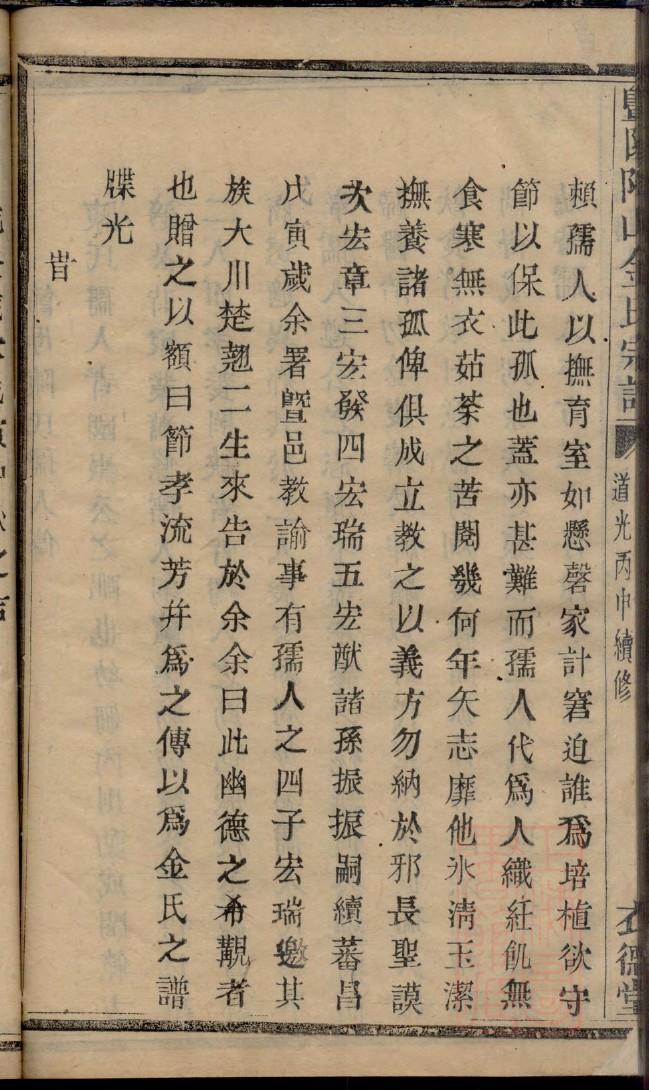 暨陽陶山金氏宗譜
道光丙申續修
衣德堂
賴孺人以撫育室如懸磬家計窘迫誰爲培植欲守
節以保此孤也蓋亦甚難而孺人代爲人織紝飢無
食寒無衣茹荼之苦閱幾何年矢志靡他氷清玉潔
撫養諸孤俾俱成立教之以義方勿納於邪長聖謨
次宏章三宏發四宏瑞五宏猷諸孫振振嗣續蕃昌
戊寅歲余署暨邑教諭事有孺人之四子宏瑞邀其
族大川楚翹二生來告於余余曰此幽德之希觀者
也贈之以額曰節孝流芳幷爲之傳以爲金氏之譜
牒光
旹